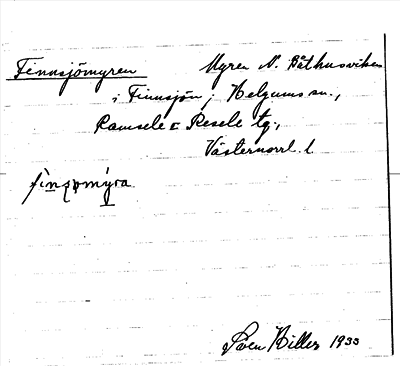 Finnsjömyren Myren N. Båthusviken
i Finnsjön, Helgums sn.,
Ramsele o Resele tg.,
Västernorrl. l
Sven Hilles 1933